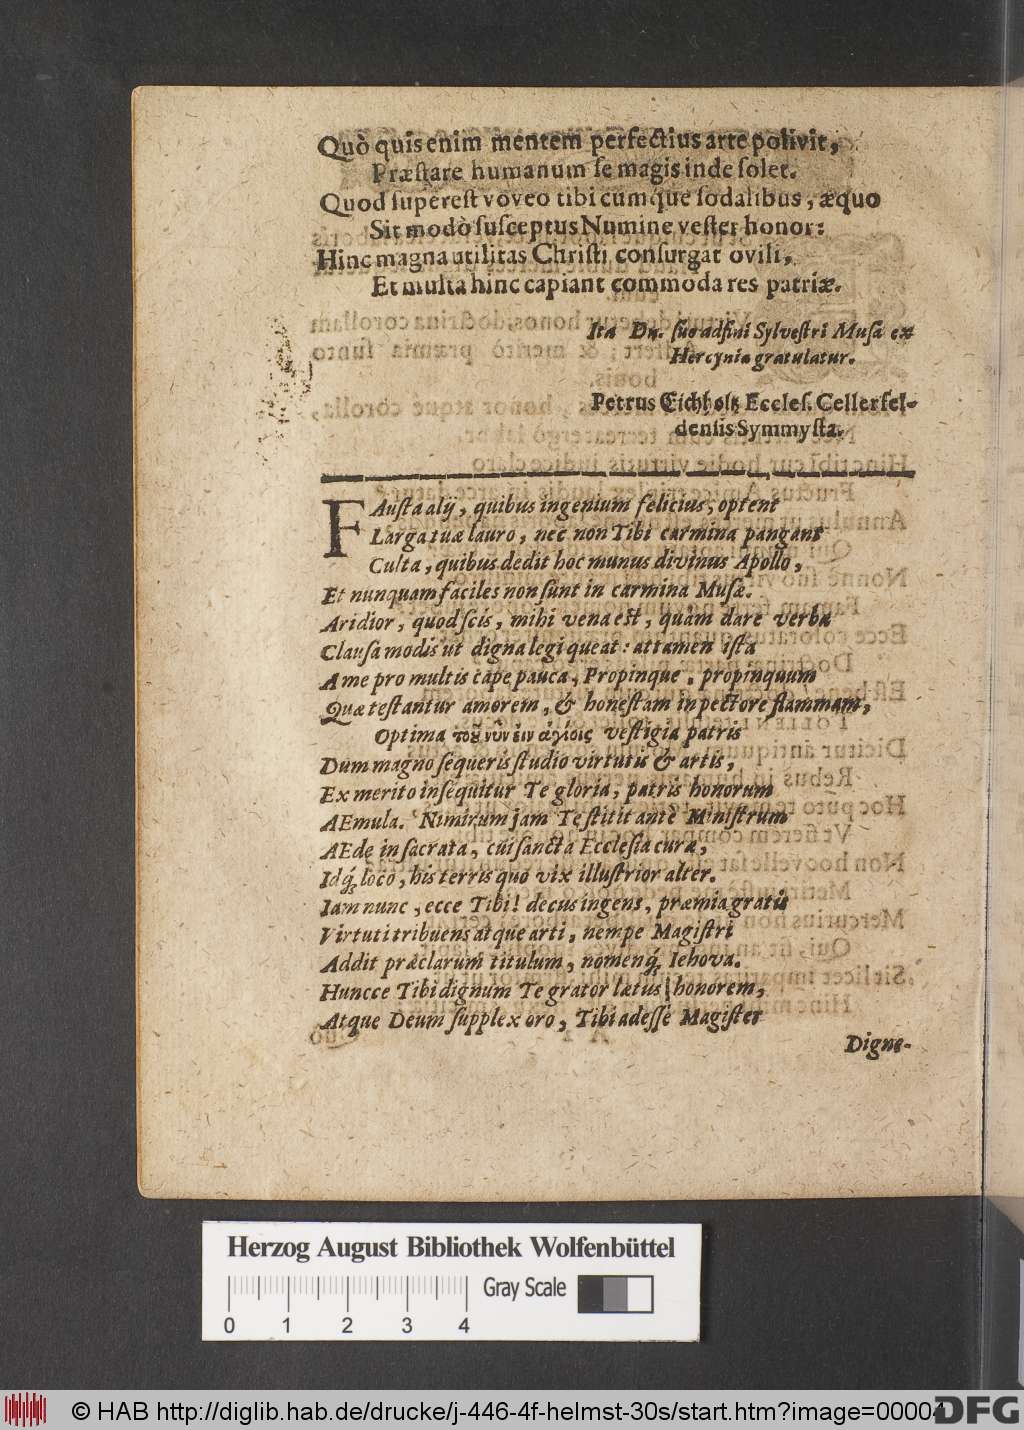 Quò quis enim mentem perfectius arte polivit,
Præſtare humanum ſe magis inde ſolet.
Quod ſupereſt voveo tibi cumque ſodalibus, æquo
Sit modò ſuſceptus Numine veſter honor:
Hinc magna utilitas Chriſti conſurgat ovili,
Et multa hinc capiant commoda res patriæ.
Ita Dn. ſuo adfini Sylveſtri Muſa ex
Hercynia gratulatur.
Petrus Eichholtz Eccleſ. Cellerfel-
denſis Symmyſta.
FAuſta alij, quibus ingenium felicius, optent
Larga tuæ lauro, nec non Tibi carmina pangant
Culta, quibus dedit hoc munus divinus Apollo,
Et nunquam faciles non ſunt in carmina Muſæ.
Aridior, quod ſcis, mihi vena eſt, quàm dare verba
Clauſa modis ut digna legi queat: attamen iſta
A me pro multis cape pauca, Propinque, propinquum
Quæ teſtantur amorem, & honeſtam in pectore flammam,
Optima τοῦ νῦν ἐν ἁγίοις veſtigia patris
Dum magno ſequeris ſtudio virtutis & artis,
Ex merito inſequitur Te gloria, patris honorum
AEmula. Nimirum jam Te ſtitit antè Miniſtrum
AEde in ſacrata, cui ſancta Eccleſia curæ,
Idq́; loco, his terris quo vix illuſtrior alter.
Iam nunc, ecce Tibi! decus ingens, præmia gratis
Virtuti tribuens atque arti, nempe Magiſtri
Addit præclarum titulum, nomenq́; Iehova.
Huncce Tibi dignum Te grator lætus honorem,
Atque Deum ſupplex oro, Tibi adeſſe Magiſter
Digne-
Herzog August Bibliothek Wolfenbüttel
Gray Scale
0 1 2 3 4
© HAB http://diglib.hab.de/drucke/j-446-4f-helmst-30s/start.htm?image=00004
DFG